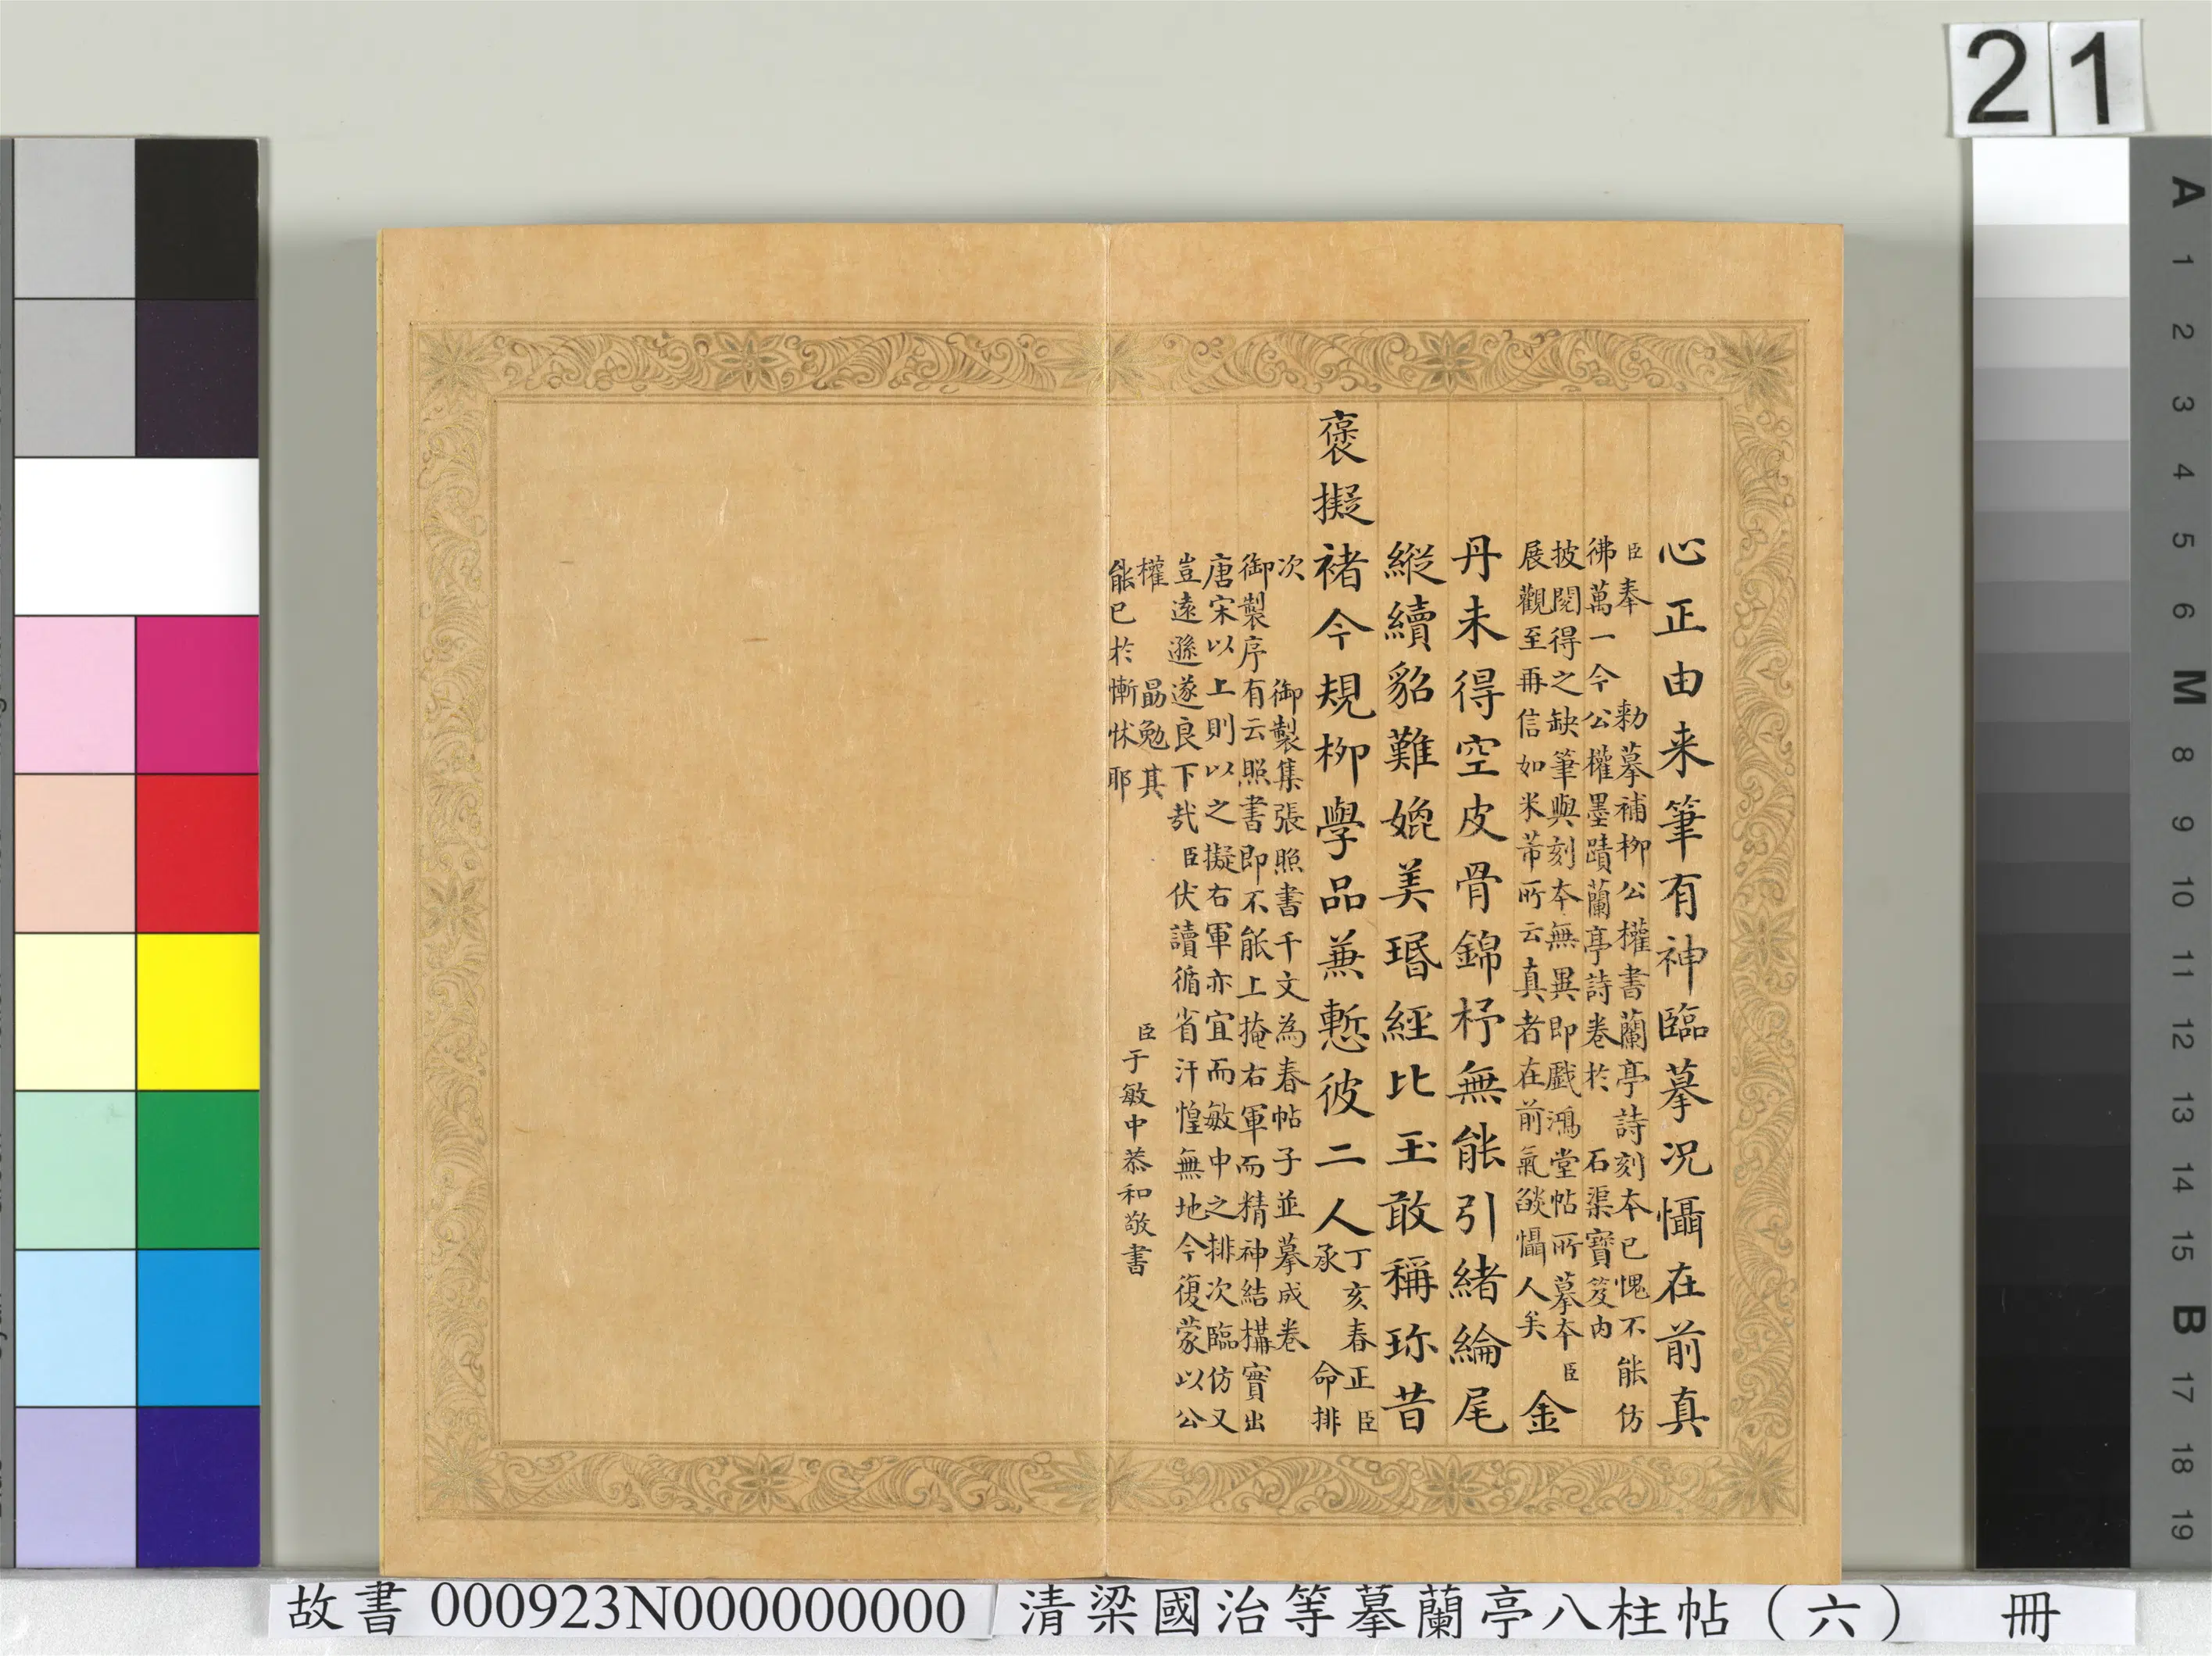 21
心正由来筆有神臨摹況懾在前真
臣奉 勅摹補柳公權書蘭亭詩刻本已愧不能仿
彿萬一今公權墨蹟蘭亭詩卷於 石渠寶笈内
披閱得之缺筆與刻本無異即戲鴻堂帖所摹本臣
展觀至再信如米芾所云真者在前氣燄懾人矣
金
丹未得空皮骨錦杼無能引緒綸尾
縱續貂難媲美瑉經比玉敢稱珎昔
褒擬褚今規柳學品兼慙彼二人
丁亥春正臣
承 命排
次 御製集張照書千文為春帖子並摹成卷
御製序有云照書即不能上掩右軍而精神結構實出
唐宋以上則以之擬右軍亦宜而敏中之排次臨仿又
豈遠遜遂良下哉臣伏讀循省汗惶無地今復蒙以公
權 勗勉其
能已於慚怵耶
臣于敏中恭和敬書
A
1
2
3
4
5
6
M
8
9
10
11
12
13
14
15
B
17
18
19
故書 000923N000000000 清梁國治等摹蘭亭八柱帖（六） 冊